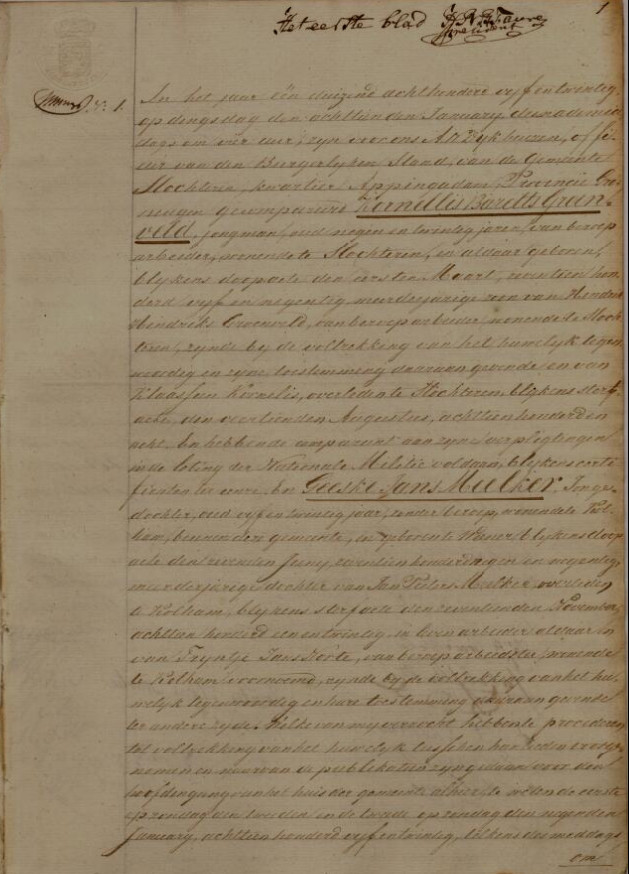 1
Het eerste blad
President
No. 1.
In het jaar één duizend achthonderd vyf en twintig,
op dingsdag den achttienden January des namid-
dags om vier uur, zyn voor ons A. R. Dykhuizen, offi-
cier van den Burgerlyken Staad, van de Gemeente
Slochteren, kwartier Appingadam, Provincie Gro-
ningen gecompareerd Kornellis Barelts Groen-
veld, jongman, oud negen en twintig jaren, van beroep
arbeider, wonende te Slochteren, en aldaar geboren,
blykens doopacte den eersten Maart, zeventien hon-
derd vyf en negentig, meerderjarige zoon van Hendrik
Hendriks Groenveld, van beroep arbeider, wonende te Sloch-
teren, zynde by de voltrekking van het huwelyk tegen-
woordig en zyne toestemming daaraan gevende en van
Klaassien Kornelis, overleden te Slochteren, blykens sterf-
acte, den veertienden Augustus, achttien honderd en
acht, En hebbende comparant aan zyn verpligtingen
in de loting der Nationale Militie voldaan, blykens certi-
ficaten ter eenre, En Geeske Jans Mulker, Jonge-
dochter, oud vyf en twintig jaar, zonder beroep, wonende te Kol-
ham, binnen dezer gemeente, en geboren te blykens doop-
acte den tweeden Juny, zeventien honderd negen en negentig,
meerderjarige dochter van Jan Peters Mulker, overleden
te Kolham, blykens sterfacte den zeventienden November,
achttien honderd een en twintig, in leven arbeider aldaar en
van Tryntje Jans Korte, van beroep arbeidster, wonende
te Kolham voornoemd, zynde by de voltrekking van het hu-
welyk tegenwoordig en hare toestemming daaraan gevende
ter andere zyde. Welke van my verzocht hebben te procederen
tot voltrekking van het huwelyk tusschen hun beiden voorge-
nomen en waarvan de publikatien zyn gedaan voor den
hoofdingang van het huis der gemeente alhier, te weten de eerste
op zondag den tweeden en de twede op zondag den negenden
January, achttien honderd vyf en twintig, telkens des middags
om